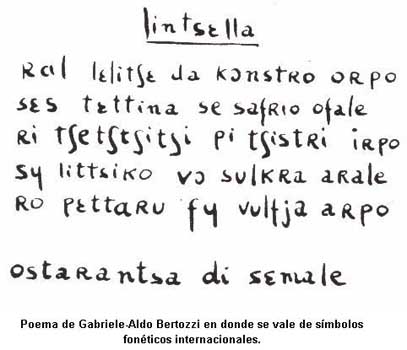 lintsɛlla
Ral lɛlitʃɛ da kɔnstro orpo
sɛs tɛttina sɛ safrio ofalɛ
Ri tʃɛtʃtʃitʃi pi tʃistri irpo
sy littsiko vɔ sulkra aralɛ
Ro pɛttaru fy vultja arpo
ostarantsa di sɛmalɛ
Poema de Gabriele-Aldo Bertozzi en donde se vale de símbolos
fonéticos internacionales.